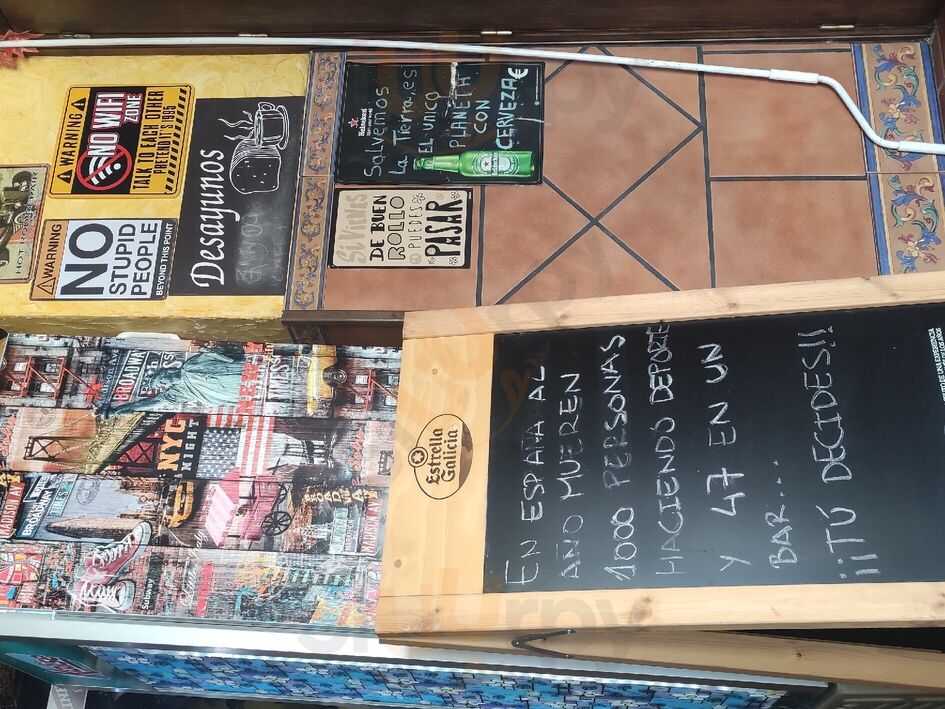 WARNING
NO WIFI
ZONE
TALK TO EACH OTHER
PRETEND IT'S 1995
WARNING
NO
STUPID
PEOPLE
BEYOND THIS POINT
Desayunos
Heineken
Salvemos
La Tierra, es
EL único
PLANETA
CON
CERVEZA
Si Vienes
DE BUEN
ROLLO
PUEDES
PASAR
Estrella
Galicia
EN ESPAÑA AL
AÑO MUEREN
1000 PERSONAS
HACIENDO DEPORTE
Y 47 EN UN
BAR...
¡¡TÚ DECIDES!!
BROADWAY
NYC
NIGHT
MADISON AV